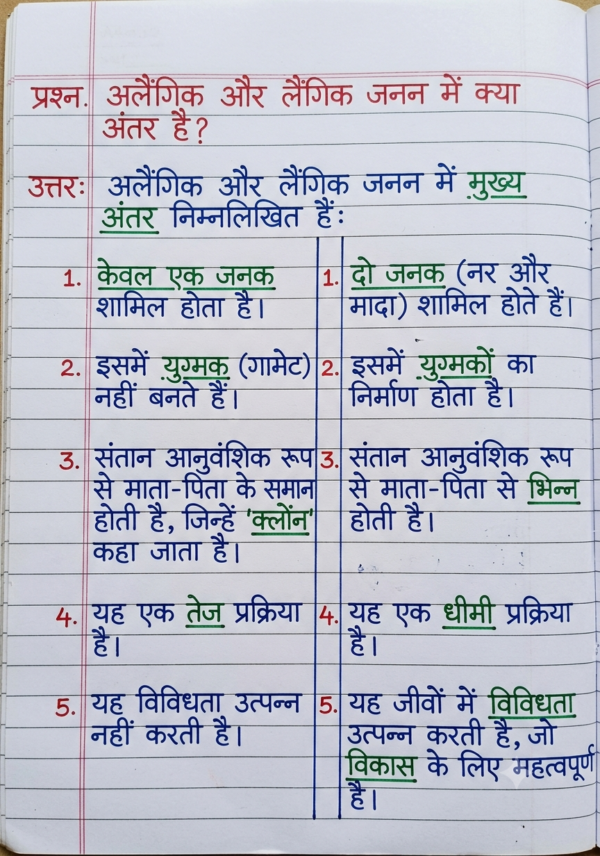 प्रश्न. अलैंगिक और लैंगिक जनन में क्या
अंतर है?
उत्तरः अलैंगिक और लैंगिक जनन में मुख्य
अंतर निम्नलिखित हैं:
1. केवल एक जनक
शामिल होता है।
2. इसमें युग्मक (गामेट)
नहीं बनते हैं।
3. संतान आनुवंशिक रूप
से माता-पिता के समान
होती है, जिन्हें 'क्लोंन'
कहा जाता है।
4. यह एक तेज प्रक्रिया
है।
5. यह विविधता उत्पन्न
नहीं करती है।
1. दो जनक (नर और
मादा) शामिल होते हैं।
2. इसमें युग्मकों का
निर्माण होता है।
3. संतान आनुवंशिक रूप
से माता-पिता से भिन्न
होती है।
4. यह एक धीमी प्रक्रिया
है।
5. यह जीवों में विविधता
उत्पन्न करती है, जो
विकास के लिए महत्वपूर्ण
है।